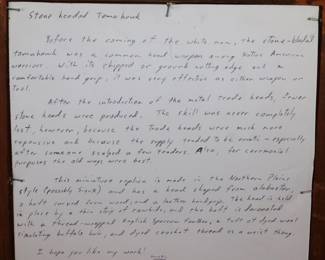 Stone headed Tomahawk
Before the coming of the white man, the stone-bladed
tomahawk was a common hand weapon among Native American
warriors. With its chipped or ground cutting edge and a
comfortable hand grip, it was very effective as either weapon or
tool.
After the introduction of the metal trade heads, fewer
stone heads were produced. The skill was never completely
lost, however, because the trade heads were much more
expensive and because the supply tended to be erratic - especially
after someone scalped a few traders. Also, for ceremonial
purposes the old ways were best.
This miniature replica is made in the Northern Plains
style (possibly Sioux) and has a head shaped from alabaster,
a haft carved from wood, and a leather handgrip. The head is held
in place by a thin strip of rawhide, and the haft is decorated
with a thread-wrapped English Sparrow feather, a tuft of dyed wool
simulating buffalo hair, and dyed crochet thread as a wrist thong.
I hope you like my work!